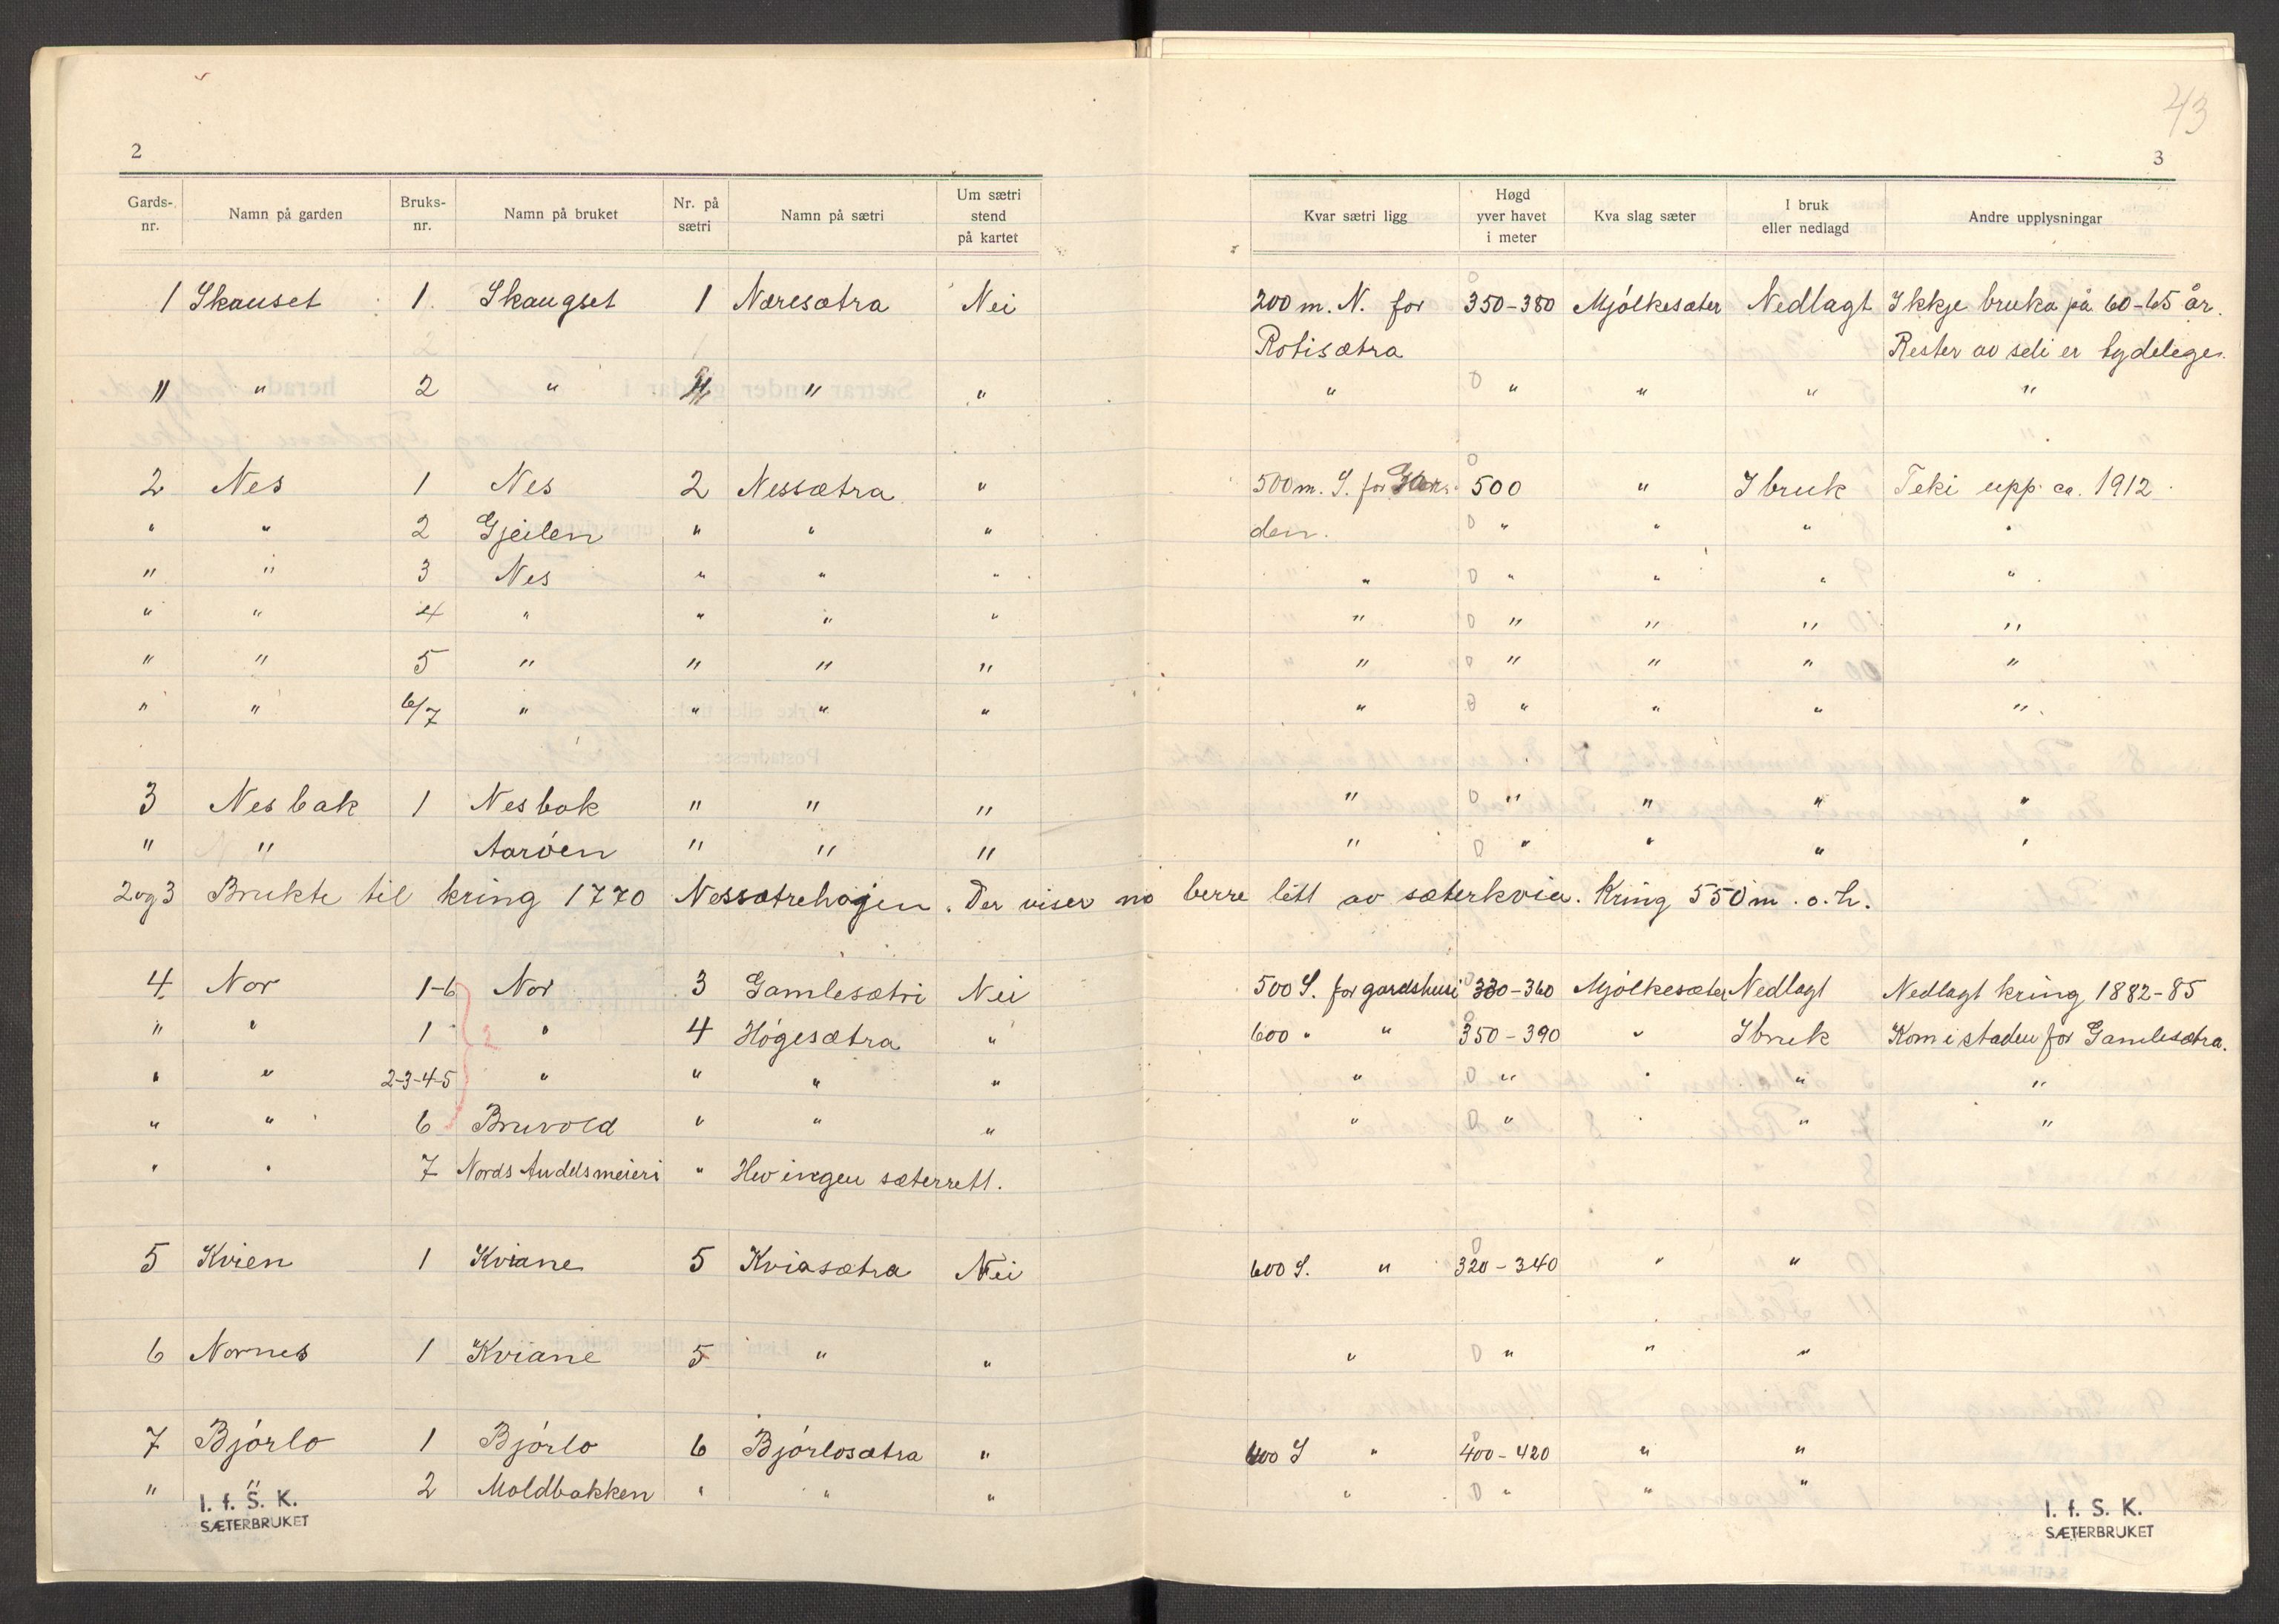 43
2
3
Gards-nr. | Namn på garden | Bruks-nr. | Namn på bruket | Nr. på sætri | Namn på sætri | Um sætri stend på kartet | Kvar sætri ligg | Høgd yver havet i meter | Kva slag sæter | I bruk eller nedlagd | Andre upplysningar
1 Skauset 1. Skaugset 1 Næresætra Nei 200 m. N. for 350-380 Mjólkesæter Nedlagt Ikkje bruka på 60-65 år.
Rotisætra Rester av seli er tydelege.
" " 2 " " " " 0 " " " "
2 Nes 1 Nes 2 Nessætra " 500 m. S. for Gar- 0 500 " I bruk Teki upp ca. 1912
" " 2 Gjeilen " " " den. 0 " " " "
" " 3 Nes " " " " 0 " " " "
" " 4 " " " " " 0 " " " "
" " 5 " " " " " 0 " " " "
" " 6/7 " " " " " 0 " " " "
3 Nesbak 1 Nesbak " " " " 0 " " " "
" " Aaröen " " " " 0 " " " "
2 og 3 Brukte til kring 1770 Nessætrehagen. Der viser no berre litt av sæterkvia. Kring 550 m. o. h.
4 Nor 1-6 Nor 3 Gamlesætri Nei 500 S. for gardshusi 0 330-360 Mjólkesæter Nedlagt Nedlagt kring 1882-85
" " 1 " 4 Högesætra " 600 " " 0 350-390 " I bruk Kom i staden for Gamlesætra.
" " 2-3-4-5 2 " " " " " 0 " " " "
" " 6 Bruvold " " " " 0 " " " "
" " 7 Nords Andelsmeieri " Hev ingen sæterrett.
5 Kvien 1 Kviane 5 Kviasætra Nei 600 S. " 0 320-340 " "
6 Nornes 1 Kviane 5 " " " 0 " " "
7 Bjórlo 1 Bjórlo 6 Bjórlosætra " 400 S " 0 400-420 " "
" " 2 Moldbakken " " " " 0 " " "
I. f. S. K.
SÆTERBRUKET
I. f. S. K.
SÆTERBRUKET